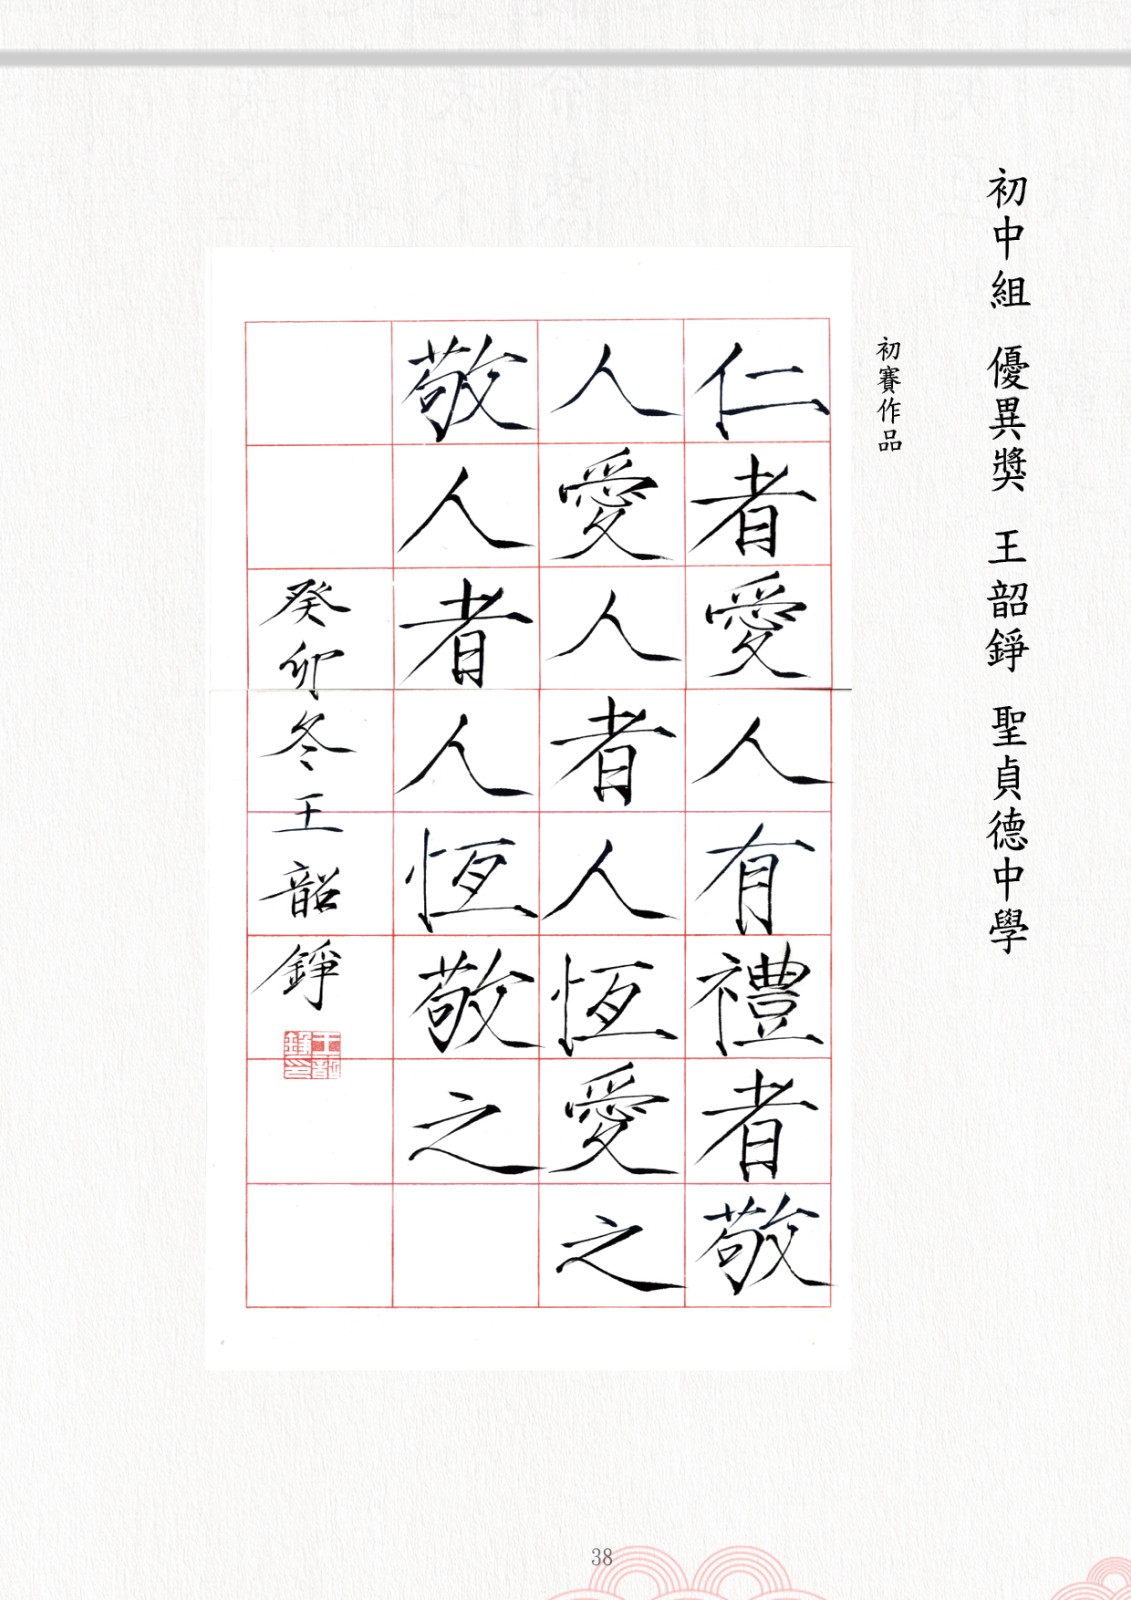 初中組 優異獎 王韶錚 聖貞德中學
初賽作品
仁者愛人有禮者敬
人愛人者人恆愛之
敬人者人恆敬之
癸卯冬王韶錚
38